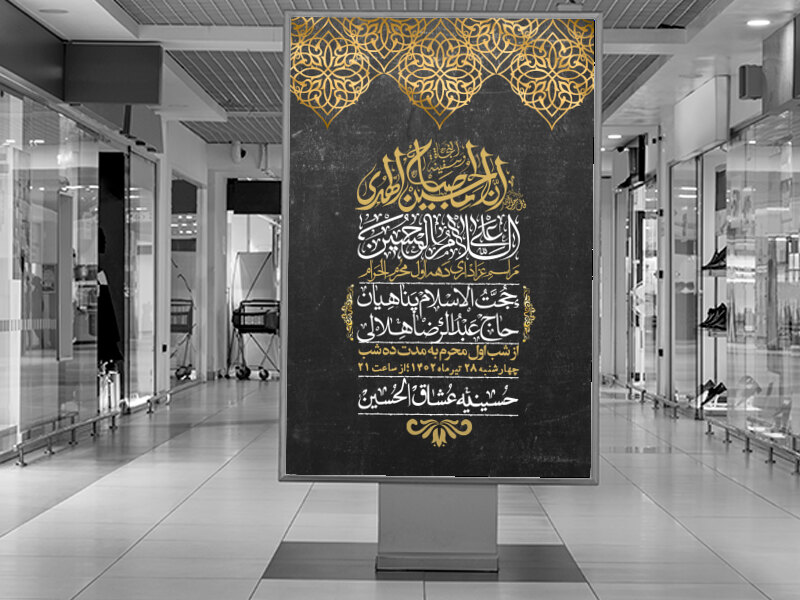 ان الحسین مصباح الهدی
و سفینة النجاة
السلام علی الحسین
مراسم عزاداری دهه اول محرم الحرام
حجت الاسلام پناهیان
حاج عبدالرضا هلالی
از شب اول محرم به مدت ده شب
چهارشنبه ۲۸ تیر ماه ۱۴۰۲ | از ساعت ۲۱
حسینیه عشاق الحسین